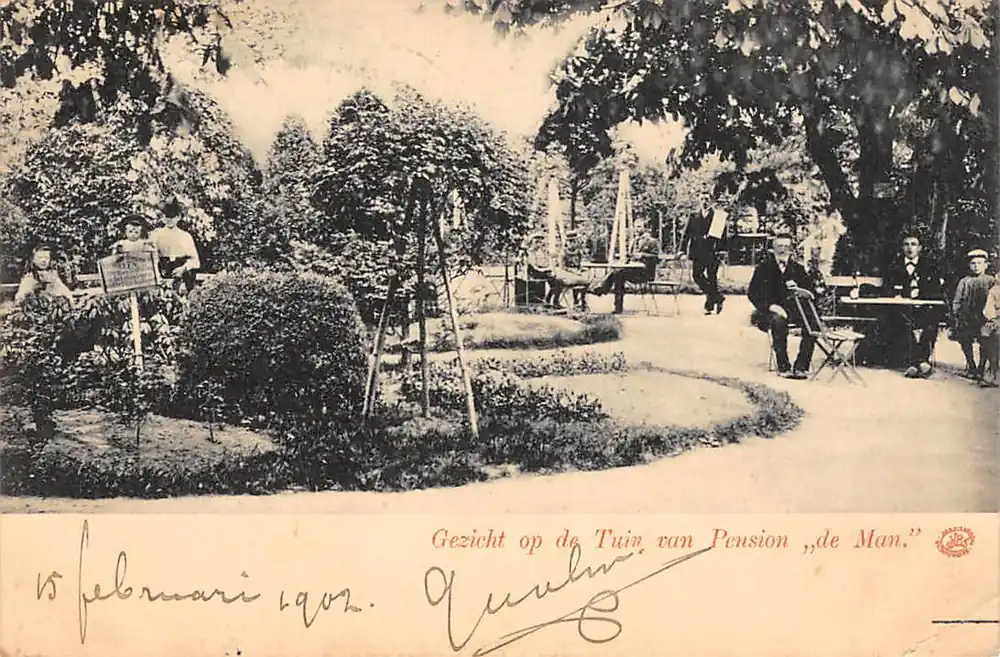 Gezicht op de Tuin van Pension „de Man.”
15 februari 1902.